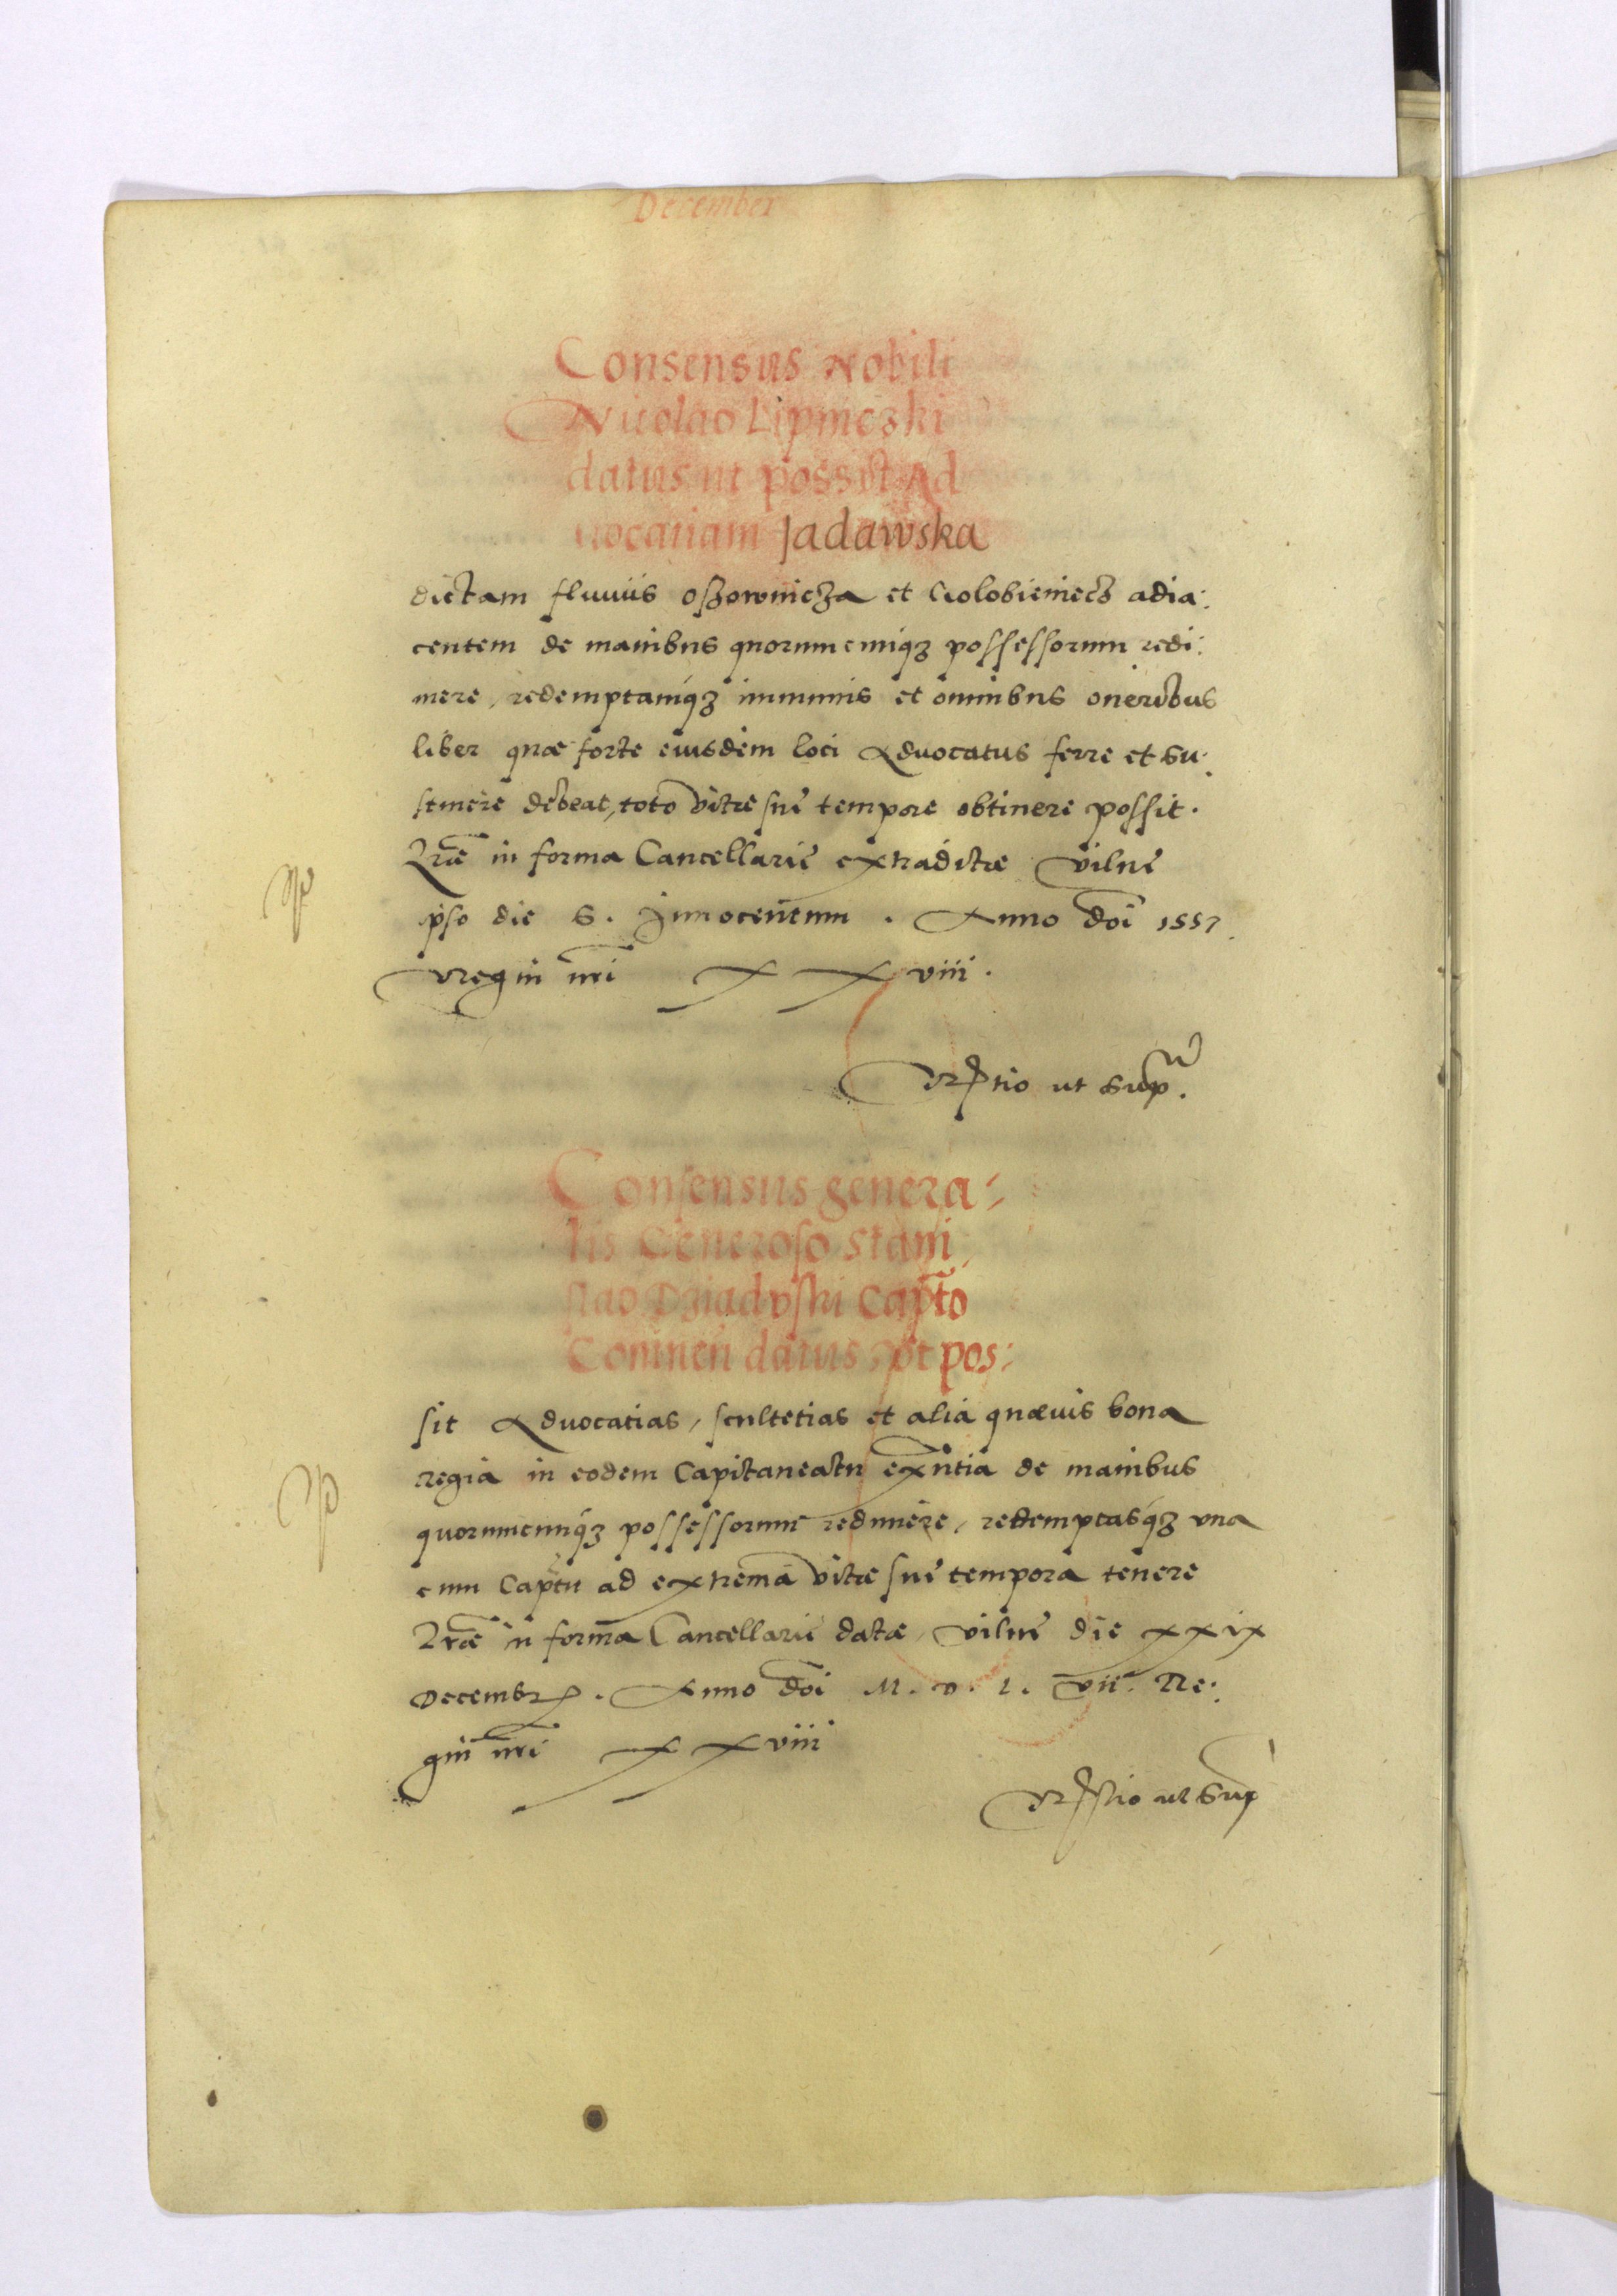 December
Consensus Nobili
Nicolao Lipniczki
datus ut possit Ad
uocatiam Jadawska
dictam fluuiis oßownicza et Golobieniecz adia:
centem de manibus quorumcunqȝ possessorum redi:
mere, redemptamqȝ immunis et omnibus oneribus
liber quæ forte eiusdem loci Aduocatus ferre et su:
stinere debeat, toto vitæ suę tempore obtinere possit.
Lr̃æ in forma Cancellarię extraditæ Vilnę
ipso die S. Innocentum . Anno dõi 1557.
Regni nr̃i XXviii.
Rłtio ut sup.
Consensus genera:
lis Generoso Stani
slao Dziadvski Capt̃o
Coninen datus, vt pos:
sit Aduocatias, scultetias et alia quæuis bona
regia in eodem Capitaneatu exñtia de manibus
quorumcunqȝ possessorum redimere, redemptasqȝ vna
cum Captu ad extrema vitæ suę tempora tenere
Lr̃æ in forma Cancellarię datæ, Vilnę die XXix
Decembr. Anno dõi M. D. L. vii. Re:
gni nr̃i XXviii
Rłtio ut sup